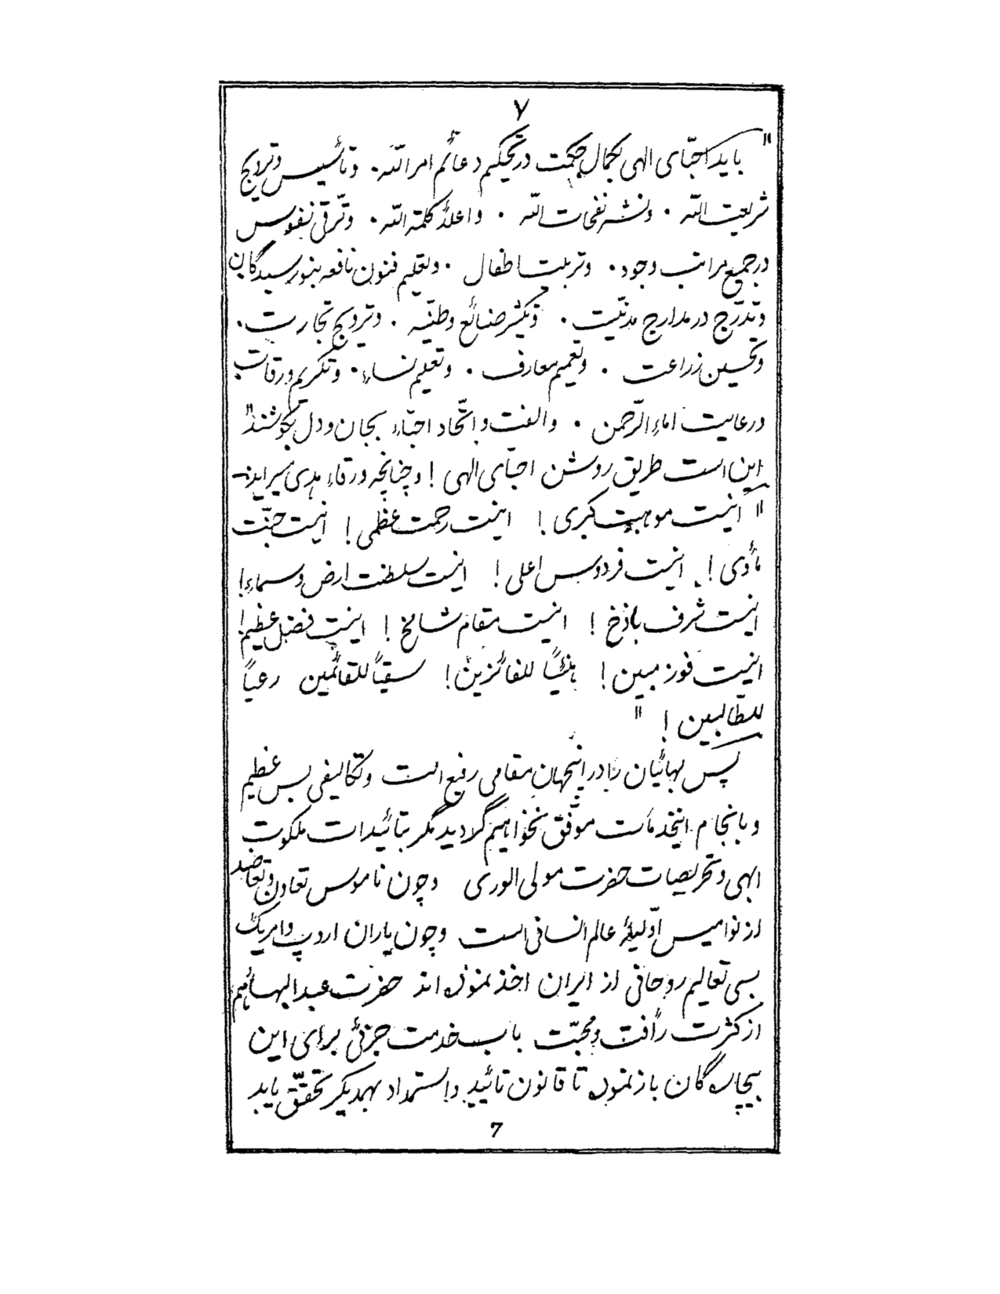 ۷
" باید احبّای الهی بکمال حکمت در تحکیم دعائم امرالله . و تأسیس و ترویج
شریعت الله . و نشر نفحات الله . و اعلاء کلمة الله . و ترقّی نفوس
در جمیع مراتب وجود . و تربیت اطفال . و تعلیم فنون نافعه بنورسیدگان
و تدرّج در مدارج مدنیّت . و تکثیر صنائع وطنیّه . و ترویج تجارت .
و تحسین زراعت . و تعمیم معارف . و تعلیم نساء . و تکریم ورقات
و رعایت اماء الرّحمن . و الفت و اتّحاد احبّاء بجان و دل بکوشند "
این است طریق روشن احبّای الهی ! و چنانچه ورقاء هدی میسراید :-
" اینست موهبت کبری ! اینست رحمت عظمی ! اینست جنّت
مأوی ! اینست فردوس اعلی ! اینست سلطنت ارض و سماء !
اینست شرف باذخ ! اینست مقام شامخ ! اینست فضل عظیم !
اینست فوز مبین ! هنیئاً للفائزین ! سقیاً للقائمین رعیاً
للطّالبین ! "
پس بهائیان را در اینجهان مقامی رفیع است و تکالیفی بس عظیم
و بانجام اینخدمات موفّق نخواهیم گردید مگر بتائیدات ملکوت
الهی و تحریصات حضرت مولی الوری و چون ناموس تعاون و تعاضد
از نوامیس اوّلیّهٔ عالم انسانی است و چون یاران اروپ و امریک
بسی تعالیم روحانی از ایران اخذ نموده اند حضرت عبدالبهاء هم
از کثرت رأفت و محبّت باب خدمت جزئی برای این
بیچارگان باز نموده تا قانون تائید و استمداد بهمدیگر تحقّق یابد
7